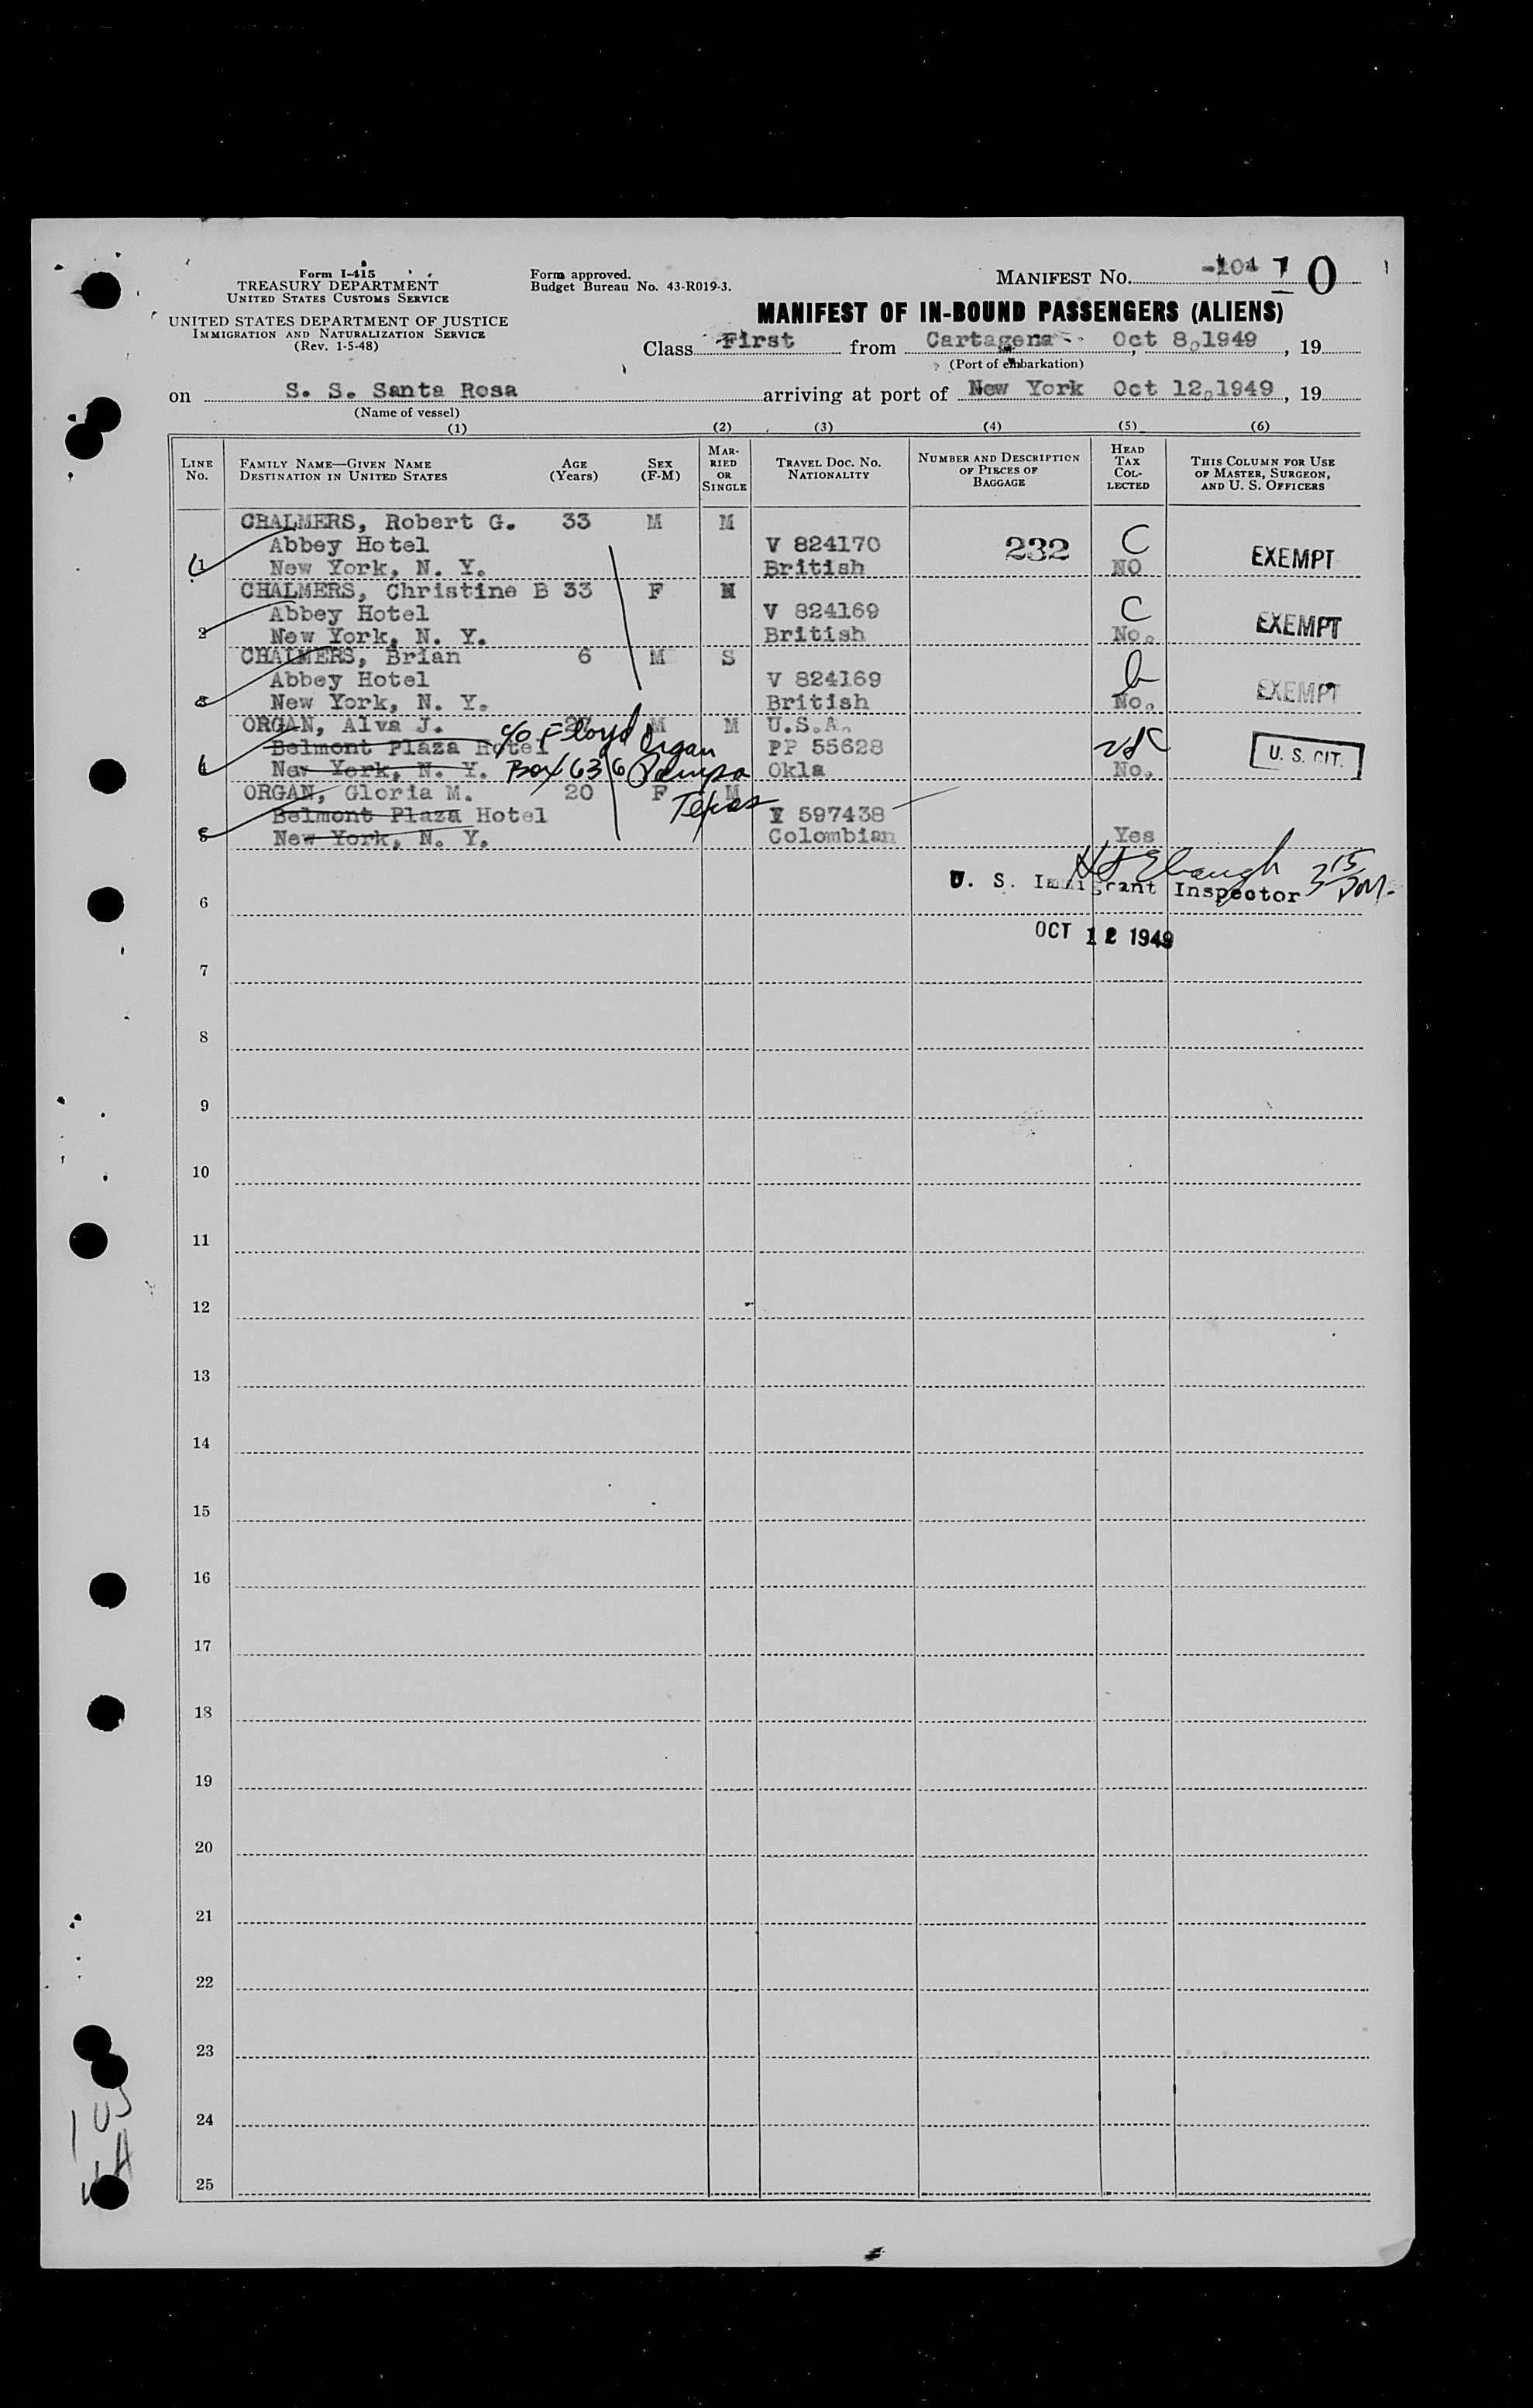 Form I-415
TREASURY DEPARTMENT
UNITED STATES CUSTOMS SERVICE
UNITED STATES DEPARTMENT OF JUSTICE
IMMIGRATION AND NATURALIZATION SERVICE
(Rev. 1-5-48)
Form approved.
Budget Bureau No. 43-R019-3.
MANIFEST No. 10
MANIFEST OF IN-BOUND PASSENGERS (ALIENS)
Class First from Cartagena, Oct 8, 1949, 19
(Port of embarkation)
on S. S. Santa Rosa arriving at port of New York Oct 12, 1949, 19
(Name of vessel)
(1) (2) (3) (4) (5) (6)
LINE No. FAMILY NAME—GIVEN NAME DESTINATION IN UNITED STATES AGE (Years) SEX (F-M) MARRIED OR SINGLE TRAVEL DOC. NO. NATIONALITY NUMBER AND DESCRIPTION OF PIECES OF BAGGAGE HEAD TAX COLLECTED THIS COLUMN FOR USE OF MASTER, SURGEON, AND U. S. OFFICERS
CHALMERS, Robert G. 33 M M
Abbey Hotel V 824170 232 C EXEMPT
1 New York, N. Y. British NO
CHALMERS, Christine B 33 F M
Abbey Hotel V 824169 C EXEMPT
2 New York, N. Y. British No.
CHALMERS, Brian 6 M S
Abbey Hotel V 824169 EXEMPT
3 New York, N. Y. British No.
ORGAN, Alva J. M M U.S.A.
c/o Floyd Organ
Belmont Plaza Hotel PP 55628 U. S. CIT.
4 New York, N. Y. Box 636 Pampa Okla No.
Texas
ORGAN, Gloria M. 20 F M
Belmont Plaza Hotel V 597438
5 New York, N. Y. Colombian Yes
U. S. Immigrant Inspector 3 15 PM
6
OCT 12 1949
7
8
9
10
11
12
13
14
15
16
17
18
19
20
21
22
23
24
25